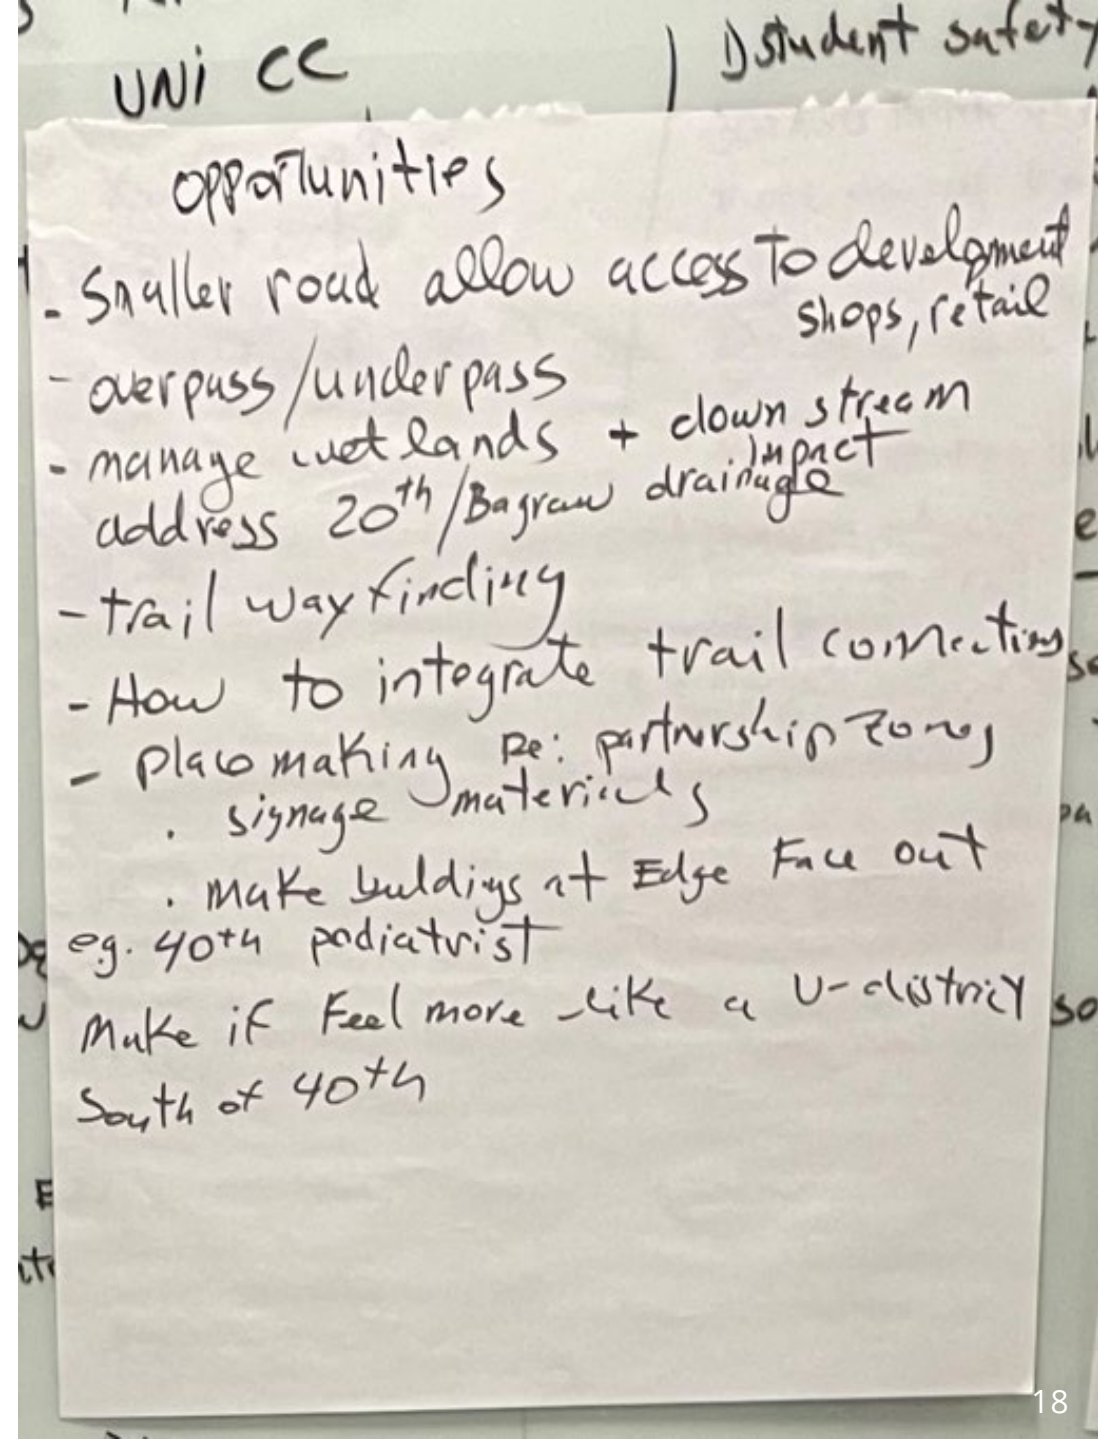 UNi CC
1) student safety
opportunities
- Smaller road allow access to development
shops, retail
- overpass/underpass
- manage wetlands + down stream
impact
address 20th/Bagraw drainage
- trail wayfinding
- How to integrate trail connections
- placemaking Re: partnership zones
. signage materials
. make buldings at Edge Face out
eg. 40th podiatrist
Make if Feel more like a U-district
South of 40th
18